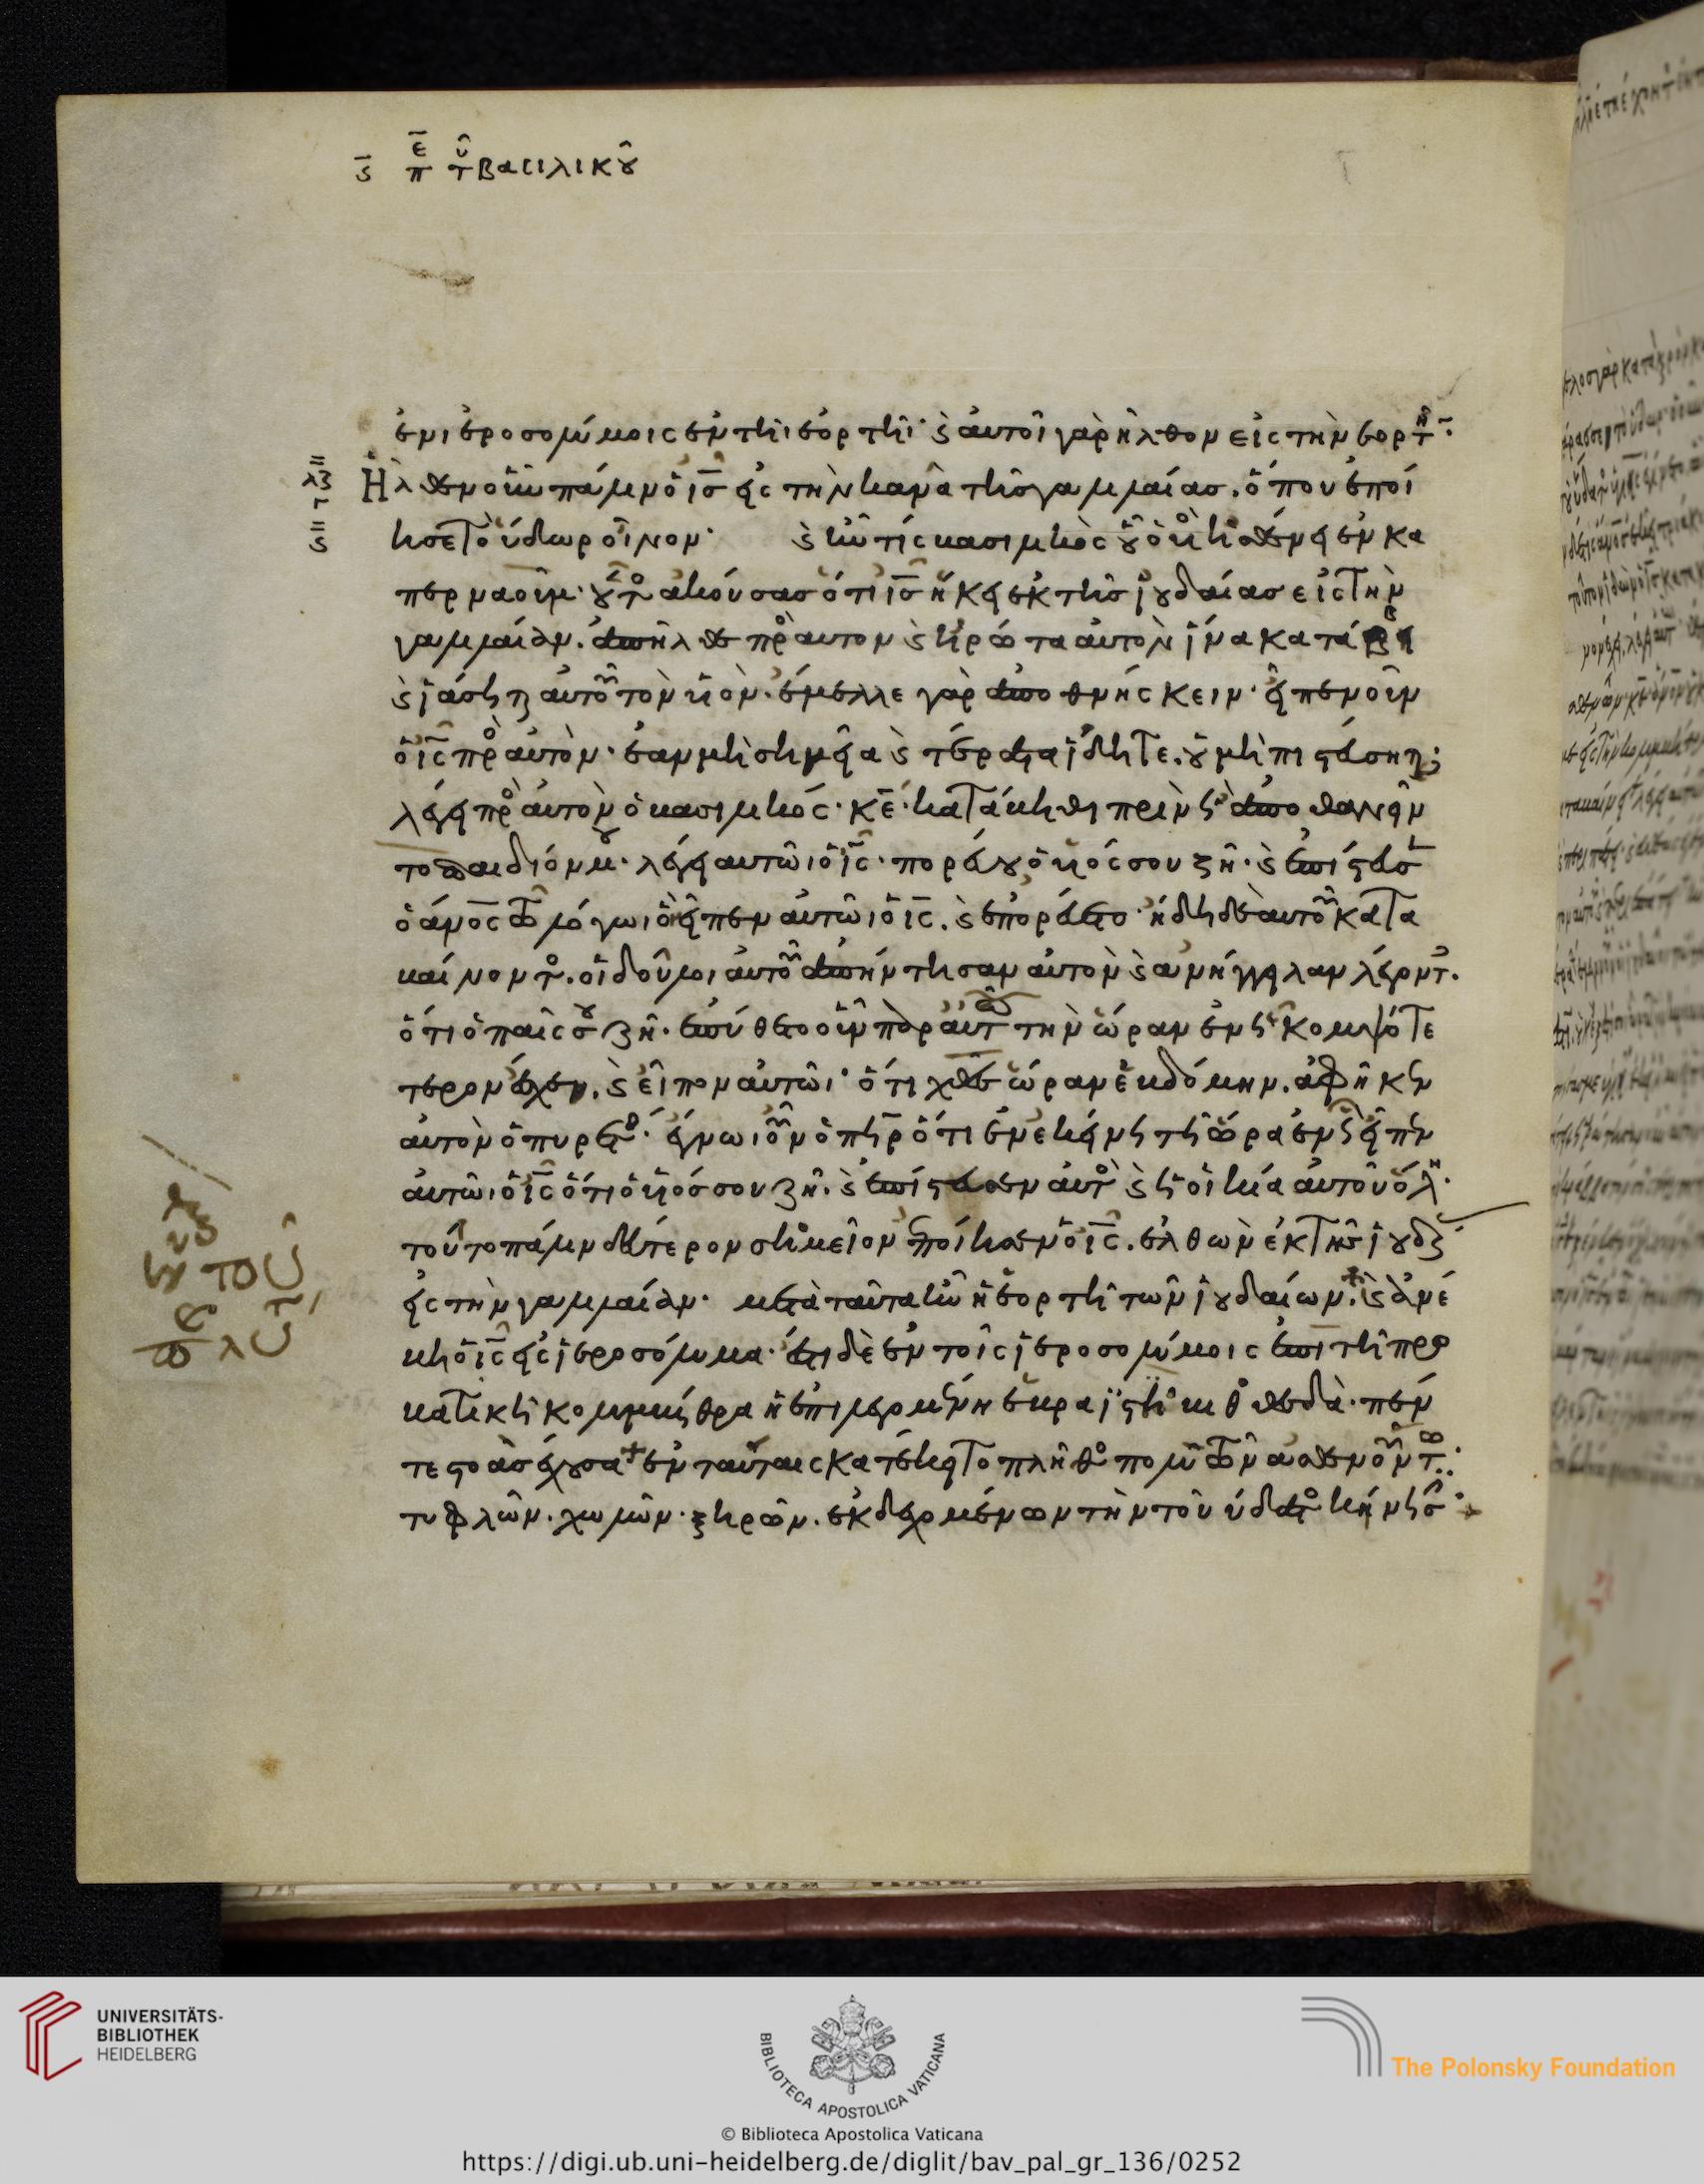 ϛ πε του βασιλικοῦ
ἐν ἱεροσολύμοις ἐν τῆι ἑορτῆι· καὶ αὐτοὶ γὰρ ἦλθον εἰς τὴν ἑορτὴν·
λζ Ἦλθεν οὖν πάλιν ὁ ις εἰς τὴν κανὰ τῆς γαλιλαίας. ὅπου ἐποί
ϛ ησε τὸ ὕδωρ οἶνον· καὶ ἦν τίς βασιλικὸς οὗ ὁ υἱὸς ἠσθένει ἐν κα
περναοὺμ· οὗτος ἀκούσας ὅτι ις ἥκει ἐκ τῆς ἰουδαίας εἰς τὴν
γαλιλαίαν. ἀπῆλθε πρὸς αυτον καὶ ἠρώτα αὐτὸν ἵνα καταβῆ
καὶ ἰάσηται αὐτοῦ τὸν υἱὸν· ἔμελλε γὰρ ἀποθνήσκειν· εἶπεν οὖν
ὁ ις πρὸς αὐτὸν· ἐὰν μὴ σημεῖα καὶ τέρατα ἴδητε. οὐ μὴ πιστεύσητε;
λέγει πρὸς αὐτὸν ὁ βασιλικός· κε κατάβηθι πρὶν ἢ ἀποθανεῖν
το παιδίον μου· λέγει αυτῶι ὁ ις· πορεύου ὁ υἱός σου ζῆ· καὶ ἐπίστευσεν
ὁ ἄνος τῶ λόγωι ὧ εἶπεν αὐτῶι ὁ ις. καὶ ἐπορεύετο· ἤδη δὲ αὐτοῦ κατα
βαίνοντος. οἱ δοῦλοι αὐτοῦ ἀπήντησαν αὐτὸν καὶ ἀνήγγειλαν λέγοντες.
ὅτι ὁ παῖς σου ζῆ. ἐπύθετο οὖν παρ αὐτῶν τὴν ὥραν ἐν ἧ κομψότε
τερον ἔσχεν. καὶ εἶπον αυτῶι· ὅτι χθὲς ὥραν ἑβδόμην. ἀφῆκεν
αὐτὸν ὁ πυρετός· ἔγνω οὖν ὁ πηρ ὅτι ἐν ἐκείνη τῆ ὥρα ἐν ἧ εἶπεν
αὐτῶι ὁ ις ὅτι ὁ υἱός σου ζῆ. καὶ ἐπίστευσεν αὐτὸς καὶ ἡ οἰκία αὐτοῦ ὅλη·
τοῦτο πάλιν δεύτερον σημεῖον ἐποίησεν ὁ ις. ἐλθὼν ἐκ τῆς ἰουδαίας
εἰς τὴν γαλιλαίαν· μετὰ ταῦτα ἦν ἡ ἑορτὴ τῶν ἰουδαίων. καὶ ἀνέ
βη ὁ ις εἰς ἱεροσόλυμα· ἔστι δὲ ἐν τοῖς ἱεροσολύμοις ἐπὶ τῆ προ
βατικῆ κολυμβήθρα ἡ ἐπιλεγομένη ἑβραϊστὶ βηθεσδὰ· πέν
τε στοὰς ἔχουσα ἐν ταύταις κατέκειτο πλῆθος πολὺ τῶν ἀσθενούντων·
τυφλῶν. χωλῶν. ξηρῶν. ἐκδεχομένων τὴν τοῦ ὕδατος κίνησιν·